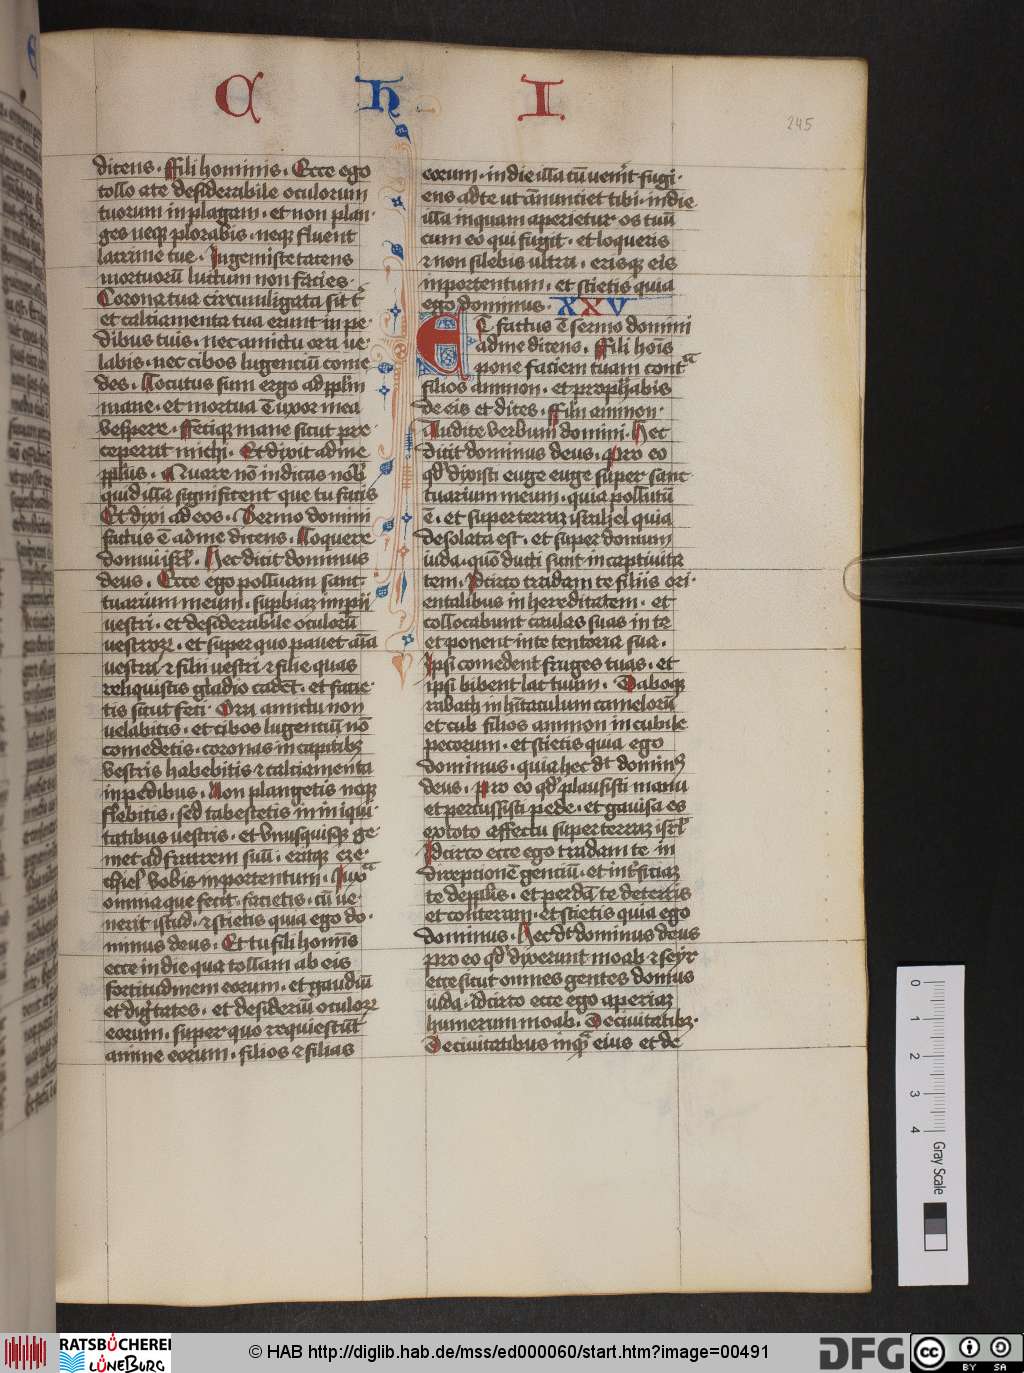 C H I
245
dicens. Fili hominis. Ecce ego
tollo a te desiderabile oculorum
tuorum in plagam. et non plan
ges neqꝫ plorabis. neqꝫ fluent
lacrime tue. Ingemisce tacens
mortuoꝝ luctum non facies.
Corona tua circumligata sit t͛
et calciamenta tua erunt in pe
dibus tuis. nec amictu ora ve
labis. nec cibos lugenciū come
des. Locutus sum ergo ad pplm̄
mane. et mortua ē uxor mea
vespere. Fecique mane sicut pre
ceperat michi. Et dixit ad me
ppl̄us. Quare nō indicas nob̄
quid ista significent que tu facis
Et dixi ad eos. Sermo domini
factus ē ad me dicens. Loquere
domui isrl̄. Hec dicit dominus
deus. Ecce ego polluam sanc
tuarium meum. supbiaꝫ imperii
vestri. et desiderabile oculorū
vestroꝝ. et super quo pavet aīa
vestra. ⁊ filii vestri ⁊ filie quas
reliquistis gladio cadēt. et facie
tis sicut feci. Ora amictu non
velabitis. et cibos lugenciū nō
comedetis. coronas in capitibꝫ
vestris habebitis ⁊ calciamenta
in pedibus. Non plangetis neqꝫ
flebitis. sed tabescetis in iniqui
tatibus vestris. et vnusquisqꝫ ge
met ad fratrem suū. eritqꝫ eze
chiel vobis in portentum. Iuxᵃ
omnia que fecit. facietis. cū ve
nerit istud. ⁊ scietis quia ego do
minus deus. Et tu fili homīs
ecce in die qua tollam ab eis
fortitudinem eorum. et gaudiū
et dignitatis. et desideriū oculoꝝ
eorum. super quo requiescūt
anime eorum. filios ⁊ filias
eorum. in die illa cū venerit fugi
ens ad te ut annunciet tibi. in die
illa inquam aperietur os tuū
cum eo qui fugit. et loqueris
⁊ non silebis ultra. erisqꝫ eis
in portentum. et scietis quia
ego dominus. XXV
Et factus ē sermo domini
ad me dicens. Fili hoīs
pone faciem tuam contᵃ
filios ammon. et prophabis
de eis et dices. Filii ammon.
Audite verbum domini. Hec
dicit dominus deus. Pro eo
qd̓ dixisti euge euge super sanc
tuarium meum. quia pollutū
ē. et super terraꝫ israhel quia
desolata est. et super domum
iuda. quō ducti sunt in captiuita
tem. Idcirco tradam te filiis ori
entalibus in hereditatem. et
collocabunt caulas suas in te
et ponent in te tentoria sua.
Ipsi comedent fruges tuas. et
ipsi bibent lac tuum. Daboqꝫ
rabath in hītaculum camelorū
et cub filios ammon in cubile
pecorum. et scietis quia ego
dominus. quia hec dt̄ dominꝰ
deus. Pro eo qd̓ plausisti manu
et percussisti pede. et gauisa es
ex toto affectu super terraꝫ isrl̄
Idcirco ecce ego tradam te in
direpcionē genciū. et int̓ficiaꝫ
te de ppl̄is. et perdā te de terris
et conteram. et scietis quia ego
dominus. Hec dt̄ dominus deus
pro eo qd̓ dixerunt moab ⁊ seyr
ecce sicut omnes gentes domus
iuda. idcirco ecce ego aperiaꝫ
humerum moab. De ciuitatibꝫ.
De ciuitatibus inqᵃ eius et de
0
1
2
3
4
Gray Scale
RATSBÜCHEREI LÜNEBURG
© HAB http://diglib.hab.de/mss/ed000060/start.htm?image=00491
DFG
CC BY SA